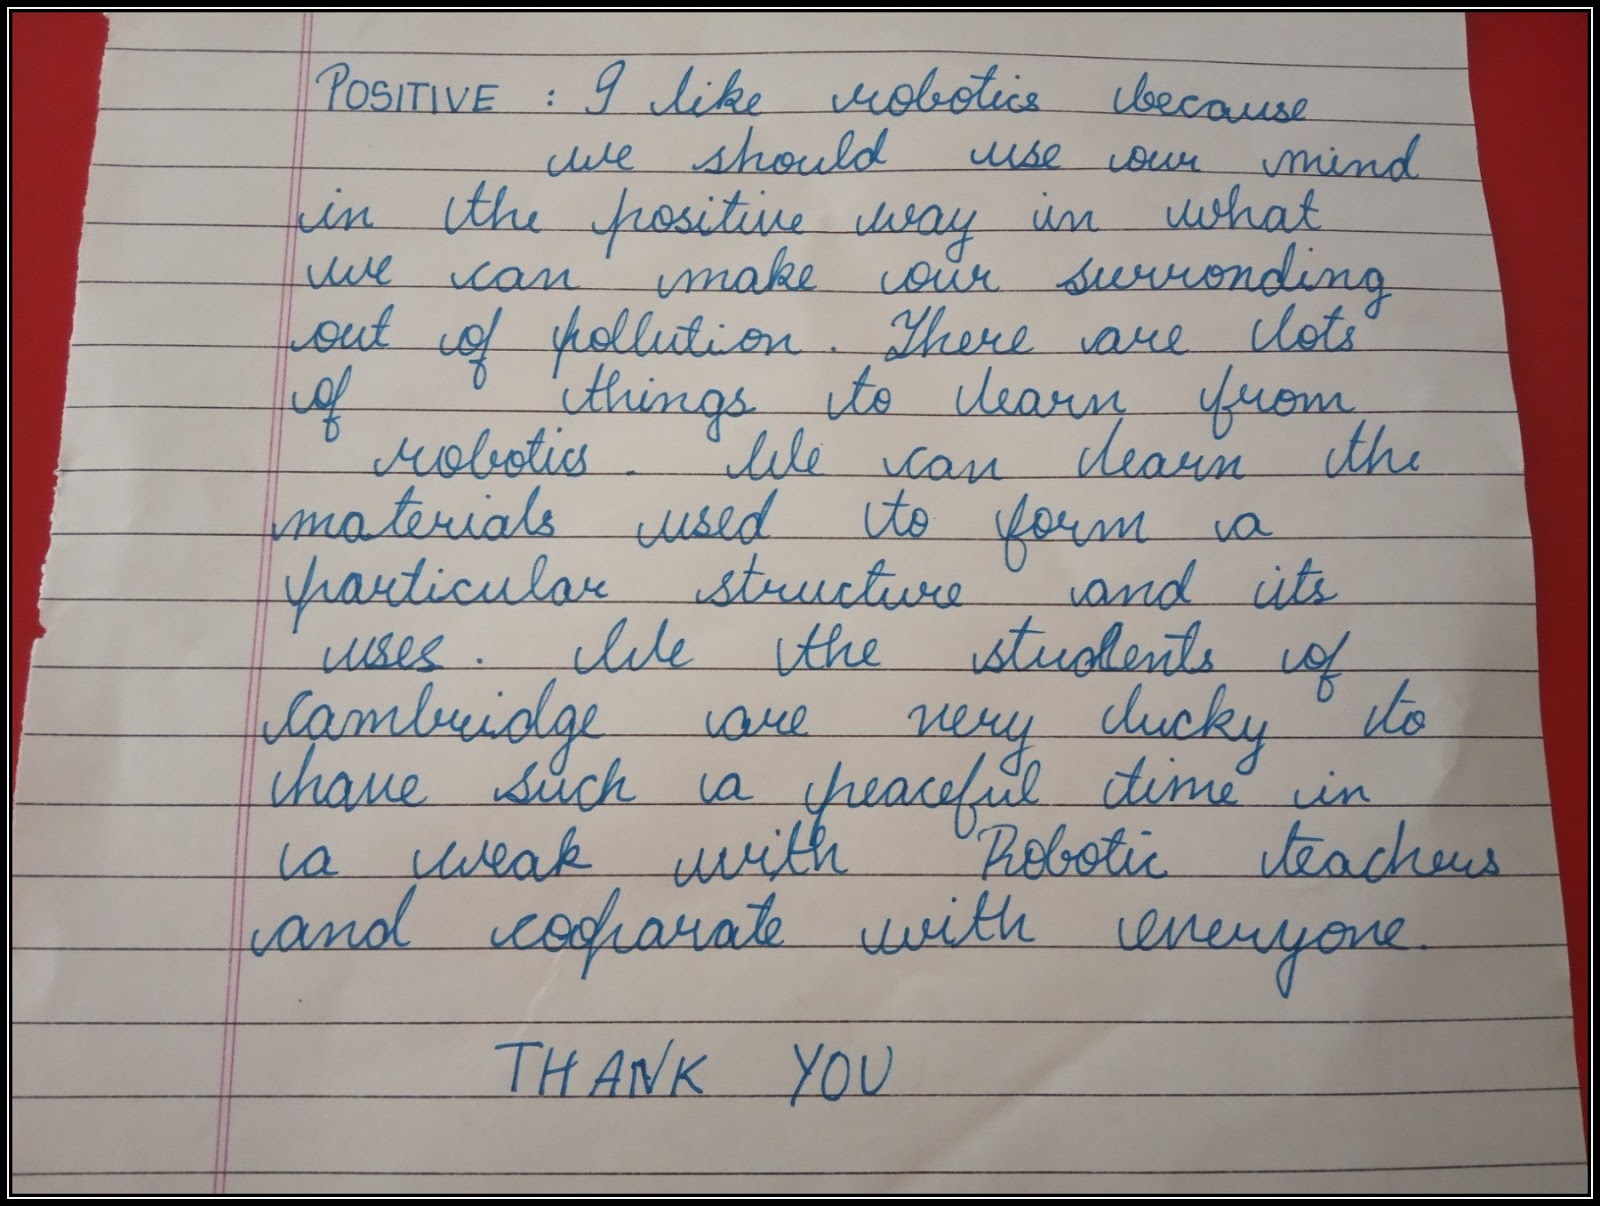 POSITIVE : I like robotics because
we should use our mind
in the positive way in what
we can make our surronding
out of pollution. There are lots
of things to learn from
robotics. We can learn the
materials used to form a
particular structure and its
uses. We the students of
Cambridge are very lucky to
have such a peaceful time in
a weak with Robotic teachers
and cooparate with everyone.
THANK YOU